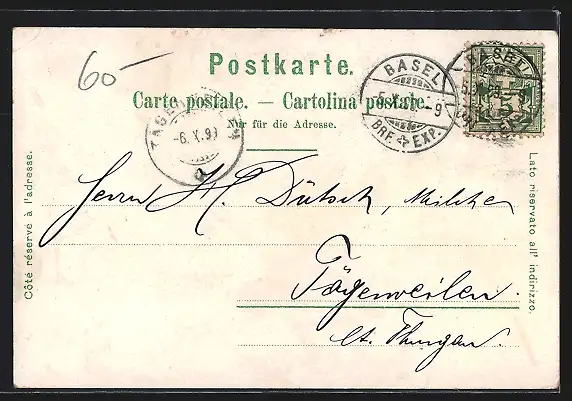 60-
Postkarte.
Carte postale. — Cartolina postale.
Nur für die Adresse.
BASEL
BRF. EXP.
BASEL
5
-6.X.9
Côté réservé à l'adresse.
Lato riservato all' indirizzo.
Herrn H. Dütsch, Milcher
Tägerweilen
Ct. Thurgau.